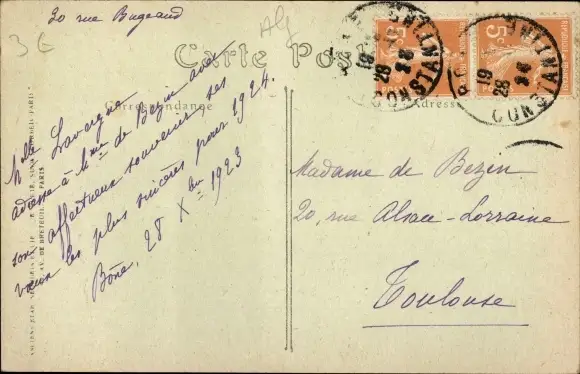 20 rue Bugeaud
Alg
3€
Carte Postale
Correspondance
Adresse
5c
5c
CONSTANTINE
CONSTANTINE
19
28
19
28
Melle Lavergne
adresse à Mme de Bezin avec
son affectueux souvenir, ses
vœux les plus sincères pour 1924.
Bône, 28 Xbre 1923
Madame de Bezin
20, rue Alsace-Lorraine
Toulouse